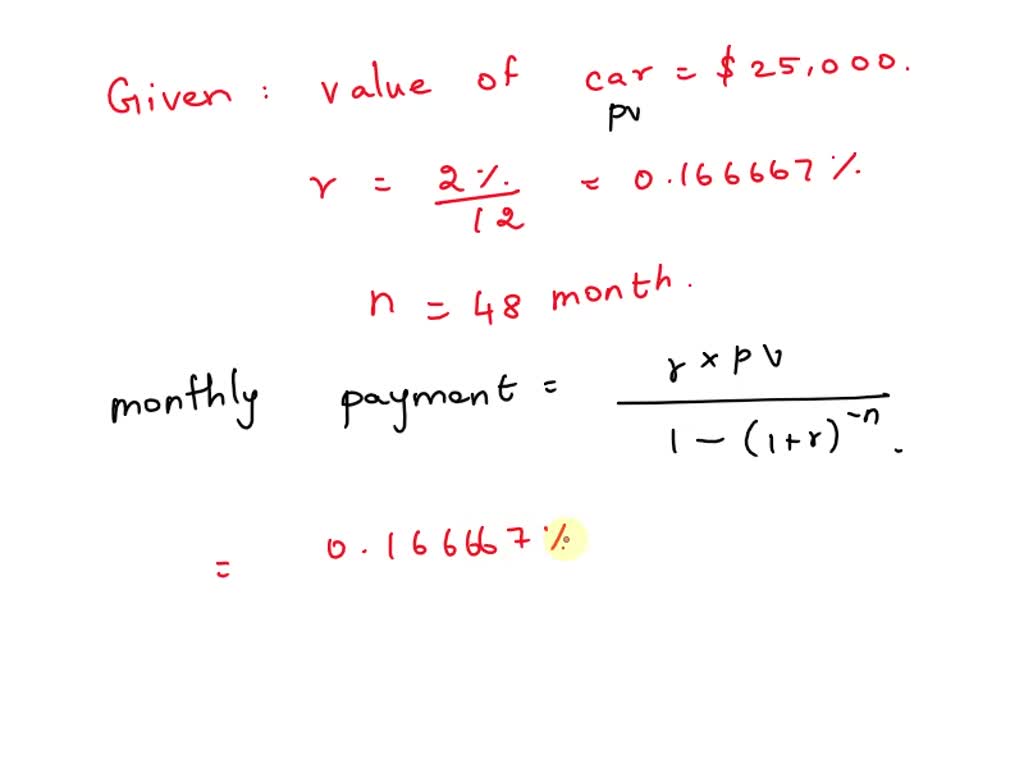 Given : value of car = $25,000.
pv
r = 2% / 12 = 0.166667%
n = 48 month.
monthly payment = r × pv / 1 - (1+r)^-n.
= 0.166667%